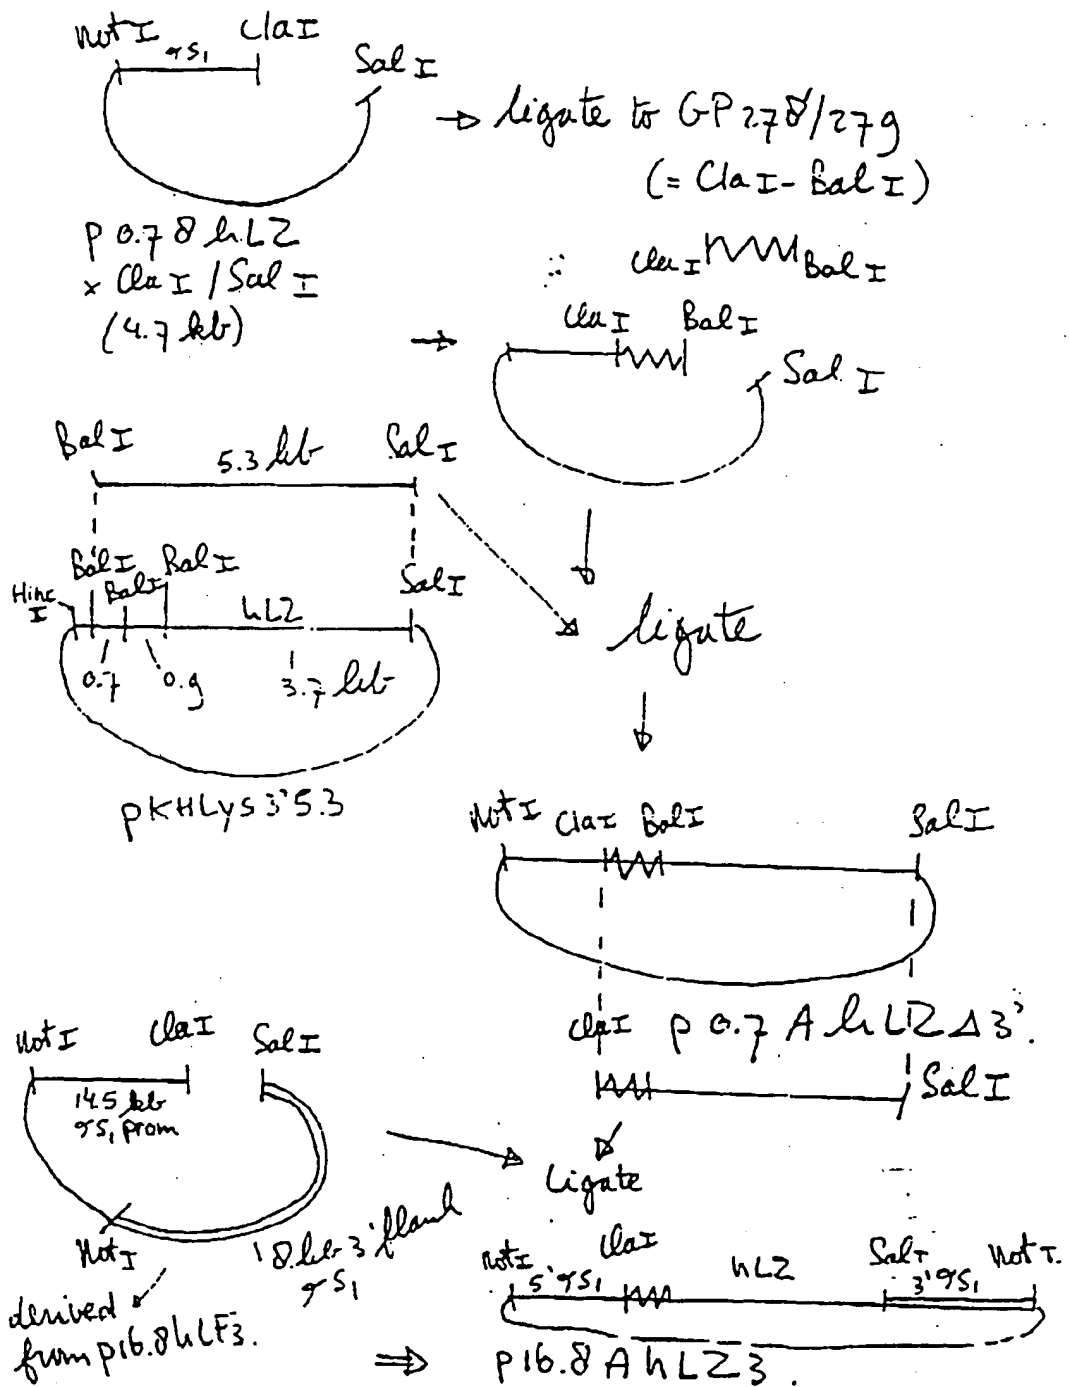 Not I ClaI
αS₁
Sal I
→ ligate to GP 278/279
(= ClaI - Bal I)
p 0.7 8 hLZ
x ClaI / Sal I
(4.7 kb)
ClaI Bal I
→
ClaI Bal I
Sal I
Bal I 5.3 kb Sal I
Bal I Bal I
Hinc I Bal I hLZ Sal I
0.7 0.9 3.7 kb
pKHLys 3'5.3
ligate
Not I ClaI Bal I Sal I
ClaI p 0.7 A hLZ Δ 3'.
Sal I
Not I ClaI Sal I
14.5 kb
αS₁ prom
Ligate
Not I
8 kb 3' flank
αS₁
derived
from p16.8hLF3.
Not I ClaI hLZ Sal I Not I.
5' αS₁ 3' αS₁
⇒ p16.8 A hLZ3.